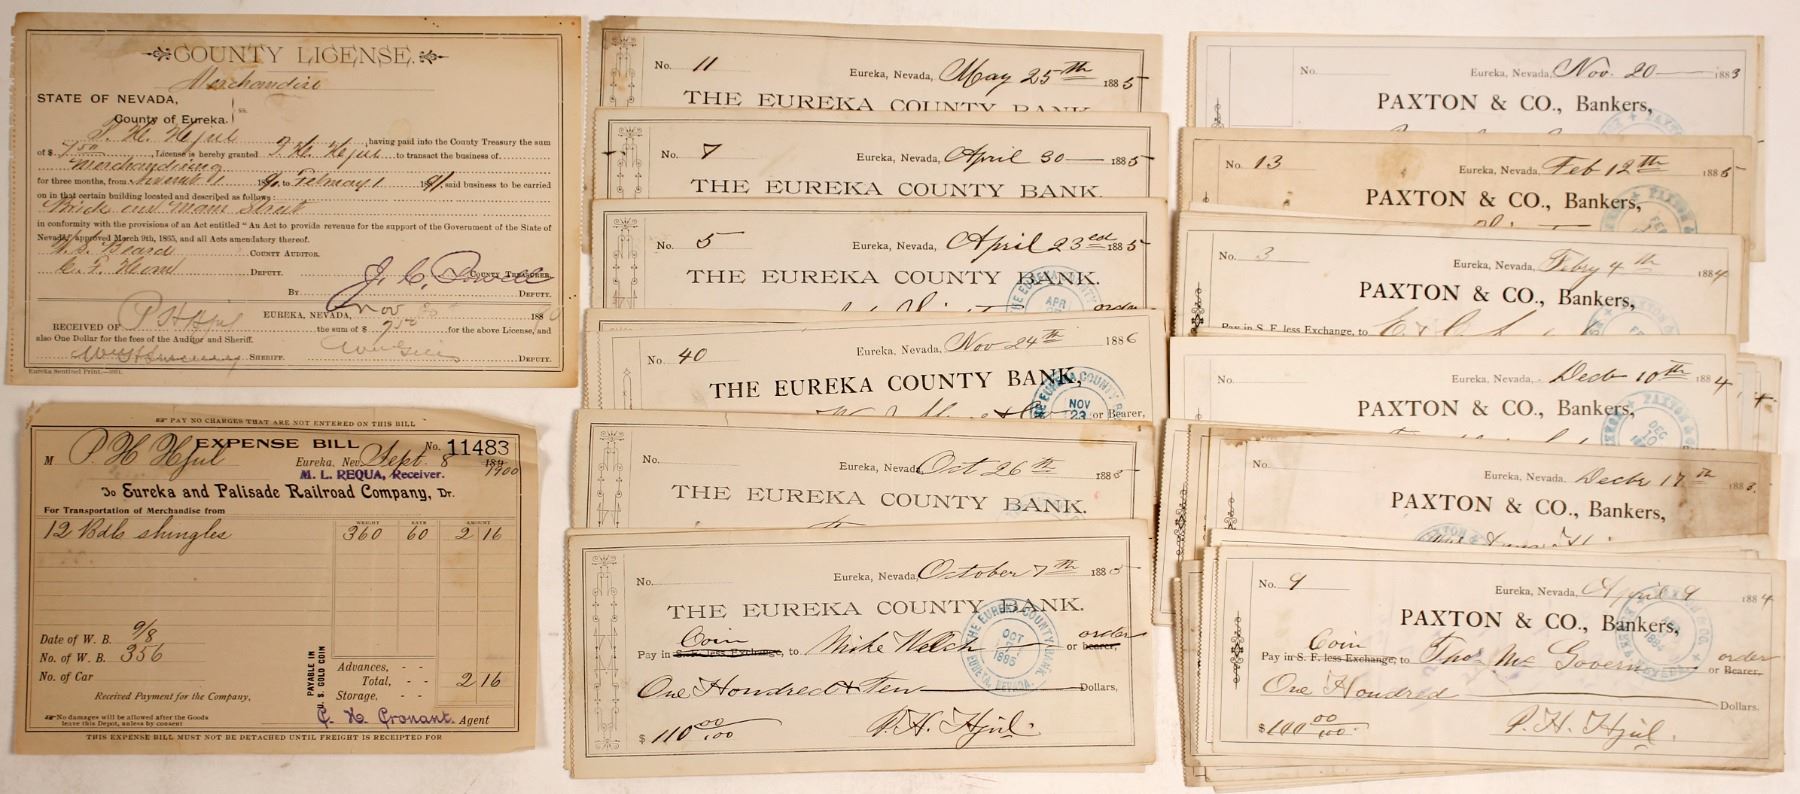 COUNTY LICENSE.
Merchandise
STATE OF NEVADA,
County of Eureka.
ss.
P. H. Hjul, having paid into the County Treasury the sum
of $ 7.50, License is hereby granted P. H. Hjul to transact the business of
Merchandising
for three months, from November 1 1890, to February 1 1891, said business to be carried
on in that certain building located and described as follows:
Brick Main Street
in conformity with the provisions of an Act entitled "An Act to provide revenue for the support of the Government of the State of
Nevada," approved March 9th, 1865, and all Acts amendatory thereof.
Beard COUNTY AUDITOR.
DEPUTY.
J. C. Powell COUNTY TREASURER.
By DEPUTY.
EUREKA, NEVADA, Nov 1890
RECEIVED OF P H Hjul the sum of $ 7.50 for the above License, and
also One Dollar for the fees of the Auditor and Sheriff.
SHERIFF. DEPUTY.
Eureka Sentinel Print.
PAY NO CHARGES THAT ARE NOT ENTERED ON THIS BILL
EXPENSE BILL No. 11483
M P. H. Hjul Eureka, Nev. Sept. 8 1900
M. L. REQUA, Receiver.
To Eureka and Palisade Railroad Company, Dr.
For Transportation of Merchandise from
WEIGHT RATE AMOUNT
12 Bdls shingles 360 60 2 16
Date of W. B. 9/8
No. of W. B. 356
No. of Car
Advances, - -
Total, - - 2 16
Storage, - -
PAYABLE IN
U. S. GOLD COIN
Received Payment for the Company,
No damages will be allowed after the Goods
leave this Depot, unless by consent
Agent
THIS EXPENSE BILL MUST NOT BE DETACHED UNTIL FREIGHT IS RECEIPTED FOR
No. 11 Eureka, Nevada, May 25th 1885
THE EUREKA COUNTY BANK
No. 7 Eureka, Nevada, April 30 1885
THE EUREKA COUNTY BANK.
No. 5 Eureka, Nevada, April 23 1885
THE EUREKA COUNTY BANK.
order
No. 40 Eureka, Nevada, Nov 24th 1886
THE EUREKA COUNTY BANK,
or Bearer,
NOV
23
No. Eureka, Nevada, Oct 26th 1885
THE EUREKA COUNTY BANK.
No. Eureka, Nevada, October 7th 1885
THE EUREKA COUNTY BANK.
Coin order
Pay in S. F. less Exchange, to Mike Welch or bearer,
One Hundred & Ten Dollars,
$ 110 00/100 P. H. Hjul.
THE EUREKA COUNTY BANK,
OCT
7
1885
EUREKA, NEVADA.
No. Eureka, Nevada, Nov. 20 1883
PAXTON & CO., Bankers,
No. 13 Eureka, Nevada, Feb 12th 1885
PAXTON & CO., Bankers,
No. 3 Eureka, Nevada, Feby 4th 1884
PAXTON & CO., Bankers,
Pay in S. F. less Exchange, to
No. Eureka, Nevada, Decb 10th 1884
PAXTON & CO., Bankers,
No. Eureka, Nevada. Decbr 17th 1883
PAXTON & CO., Bankers,
No. 9 Eureka, Nevada, April 9 1884
PAXTON & CO., Bankers,
Coin order
Pay in S. F. less Exchange, to Thos Mc Govern or Bearer,
One Hundred Dollars.
$ 100 00/100 P. H. Hjul.